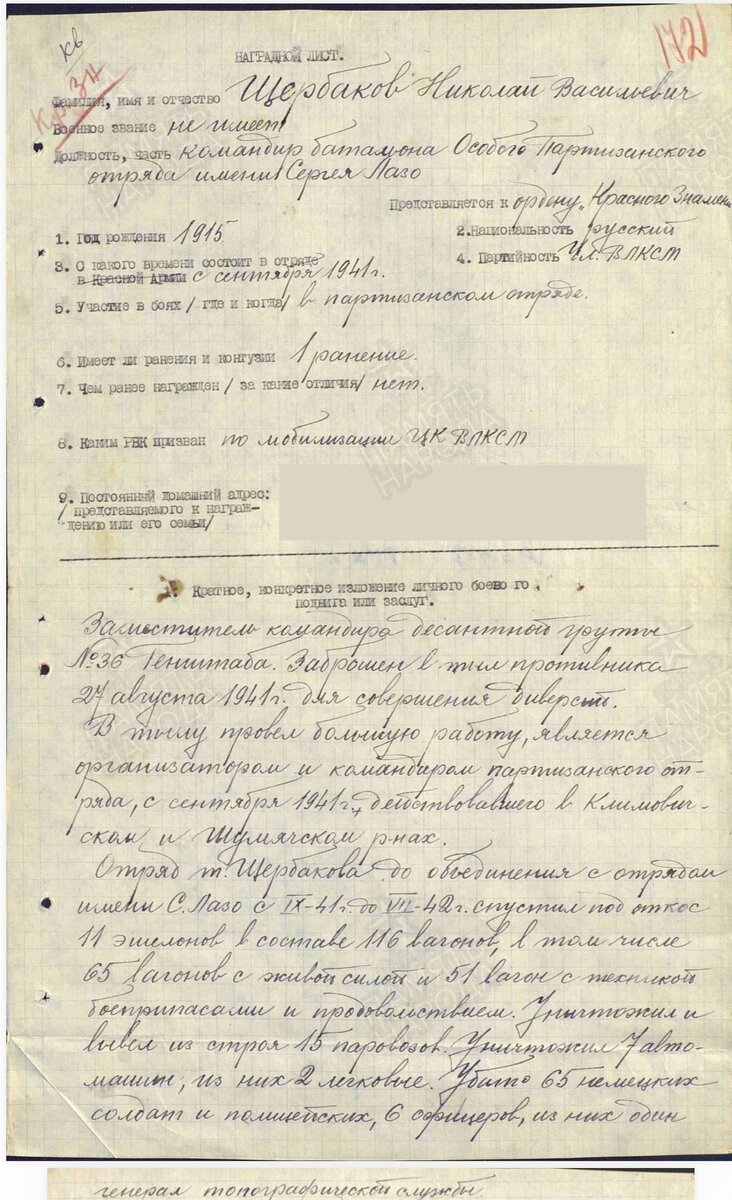 Кв
172
Кр Зн
НАГРАДНОЙ ЛИСТ.
Фамилия, имя и отчество Щербаков Николай Васильевич
Военное звание не имеет
Должность, часть командир батальона Особого Партизанского
отряда имени Сергея Лазо
Представляется к ордену „Красного Знамени
1. Год рождения 1915. 2. Национальность русский
3. С какого времени состоит в отряде 4. Партийность Чл. ВЛКСМ
в Красной Армии с сентября 1941 г.
5. Участие в боях /где и когда/ в партизанском отряде.
6. Имеет ли ранения и контузии 1 ранение.
7. Чем ранее награжден /за какие отличия/ нет.
8. Каким РВК призван по мобилизации ЦК ВЛКСМ
9. Постоянный домашний адрес:
/представляемого к награж-
дению или его семьи/
1. Краткое, конкретное изложение личного боевого
подвига или заслуг.
Заместитель командира десантной группы
№36 Генштаба. Заброшен в тыл противника
27 августа 1941 г. для совершения диверсий.
В тылу провел большую работу, является
организатором и командиром партизанского от-
ряда, с сентября 1941 г., действовавшего в Климович-
ском и Шумячском р-нах.
Отряд т. Щербакова до объединения с отрядом
имени С. Лазо с IX-41 г. до VII-42 г. спустил под откос
11 эшелонов в составе 116 вагонов, в том числе
65 вагонов с живой силой и 51 вагон с техникой
боеприпасами и продовольствием. Уничтожил и
вывел из строя 15 паровозов. Уничтожил 7 авто-
машин, из них 2 легковые. Убито 65 немецких
солдат и полицейских, 6 офицеров, из них один
генерал топографической службы.